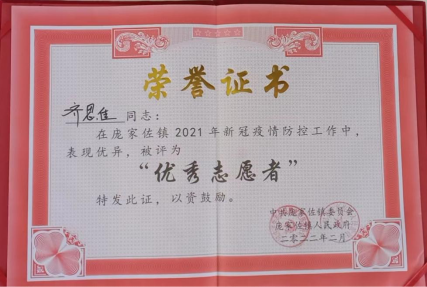 荣誉证书
齐思佳 同志：
在庞家佐镇2021年新冠疫情防控工作中，
表现优异，被评为
“优秀志愿者”
特发此证，以资鼓励。
中共庞家佐镇委员会
庞家佐镇人民政府
二〇二二年二月